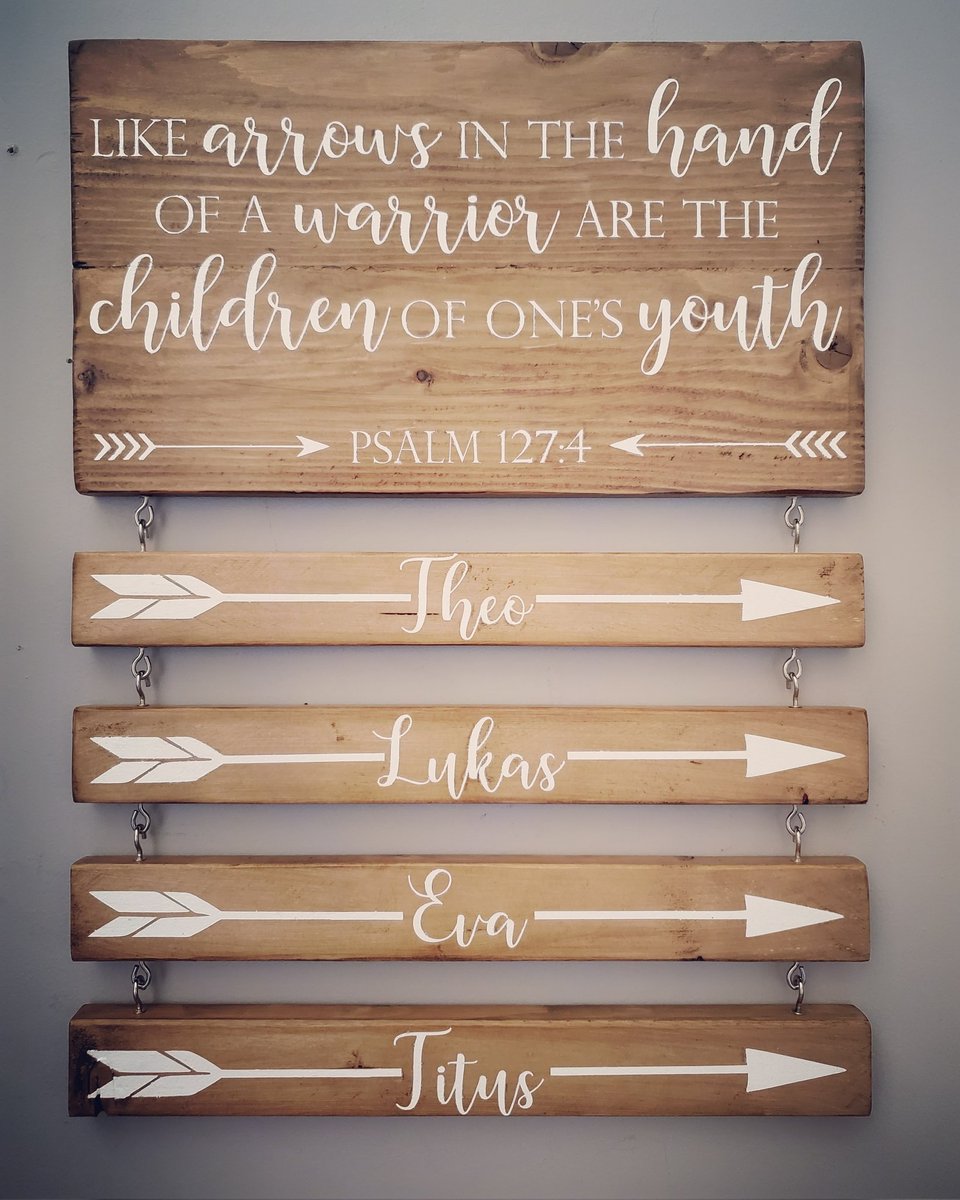 LIKE arrows IN THE hand
OF A warrior ARE THE
children OF ONE'S youth
PSALM 127:4
Theo
Lukas
Eva
Titus